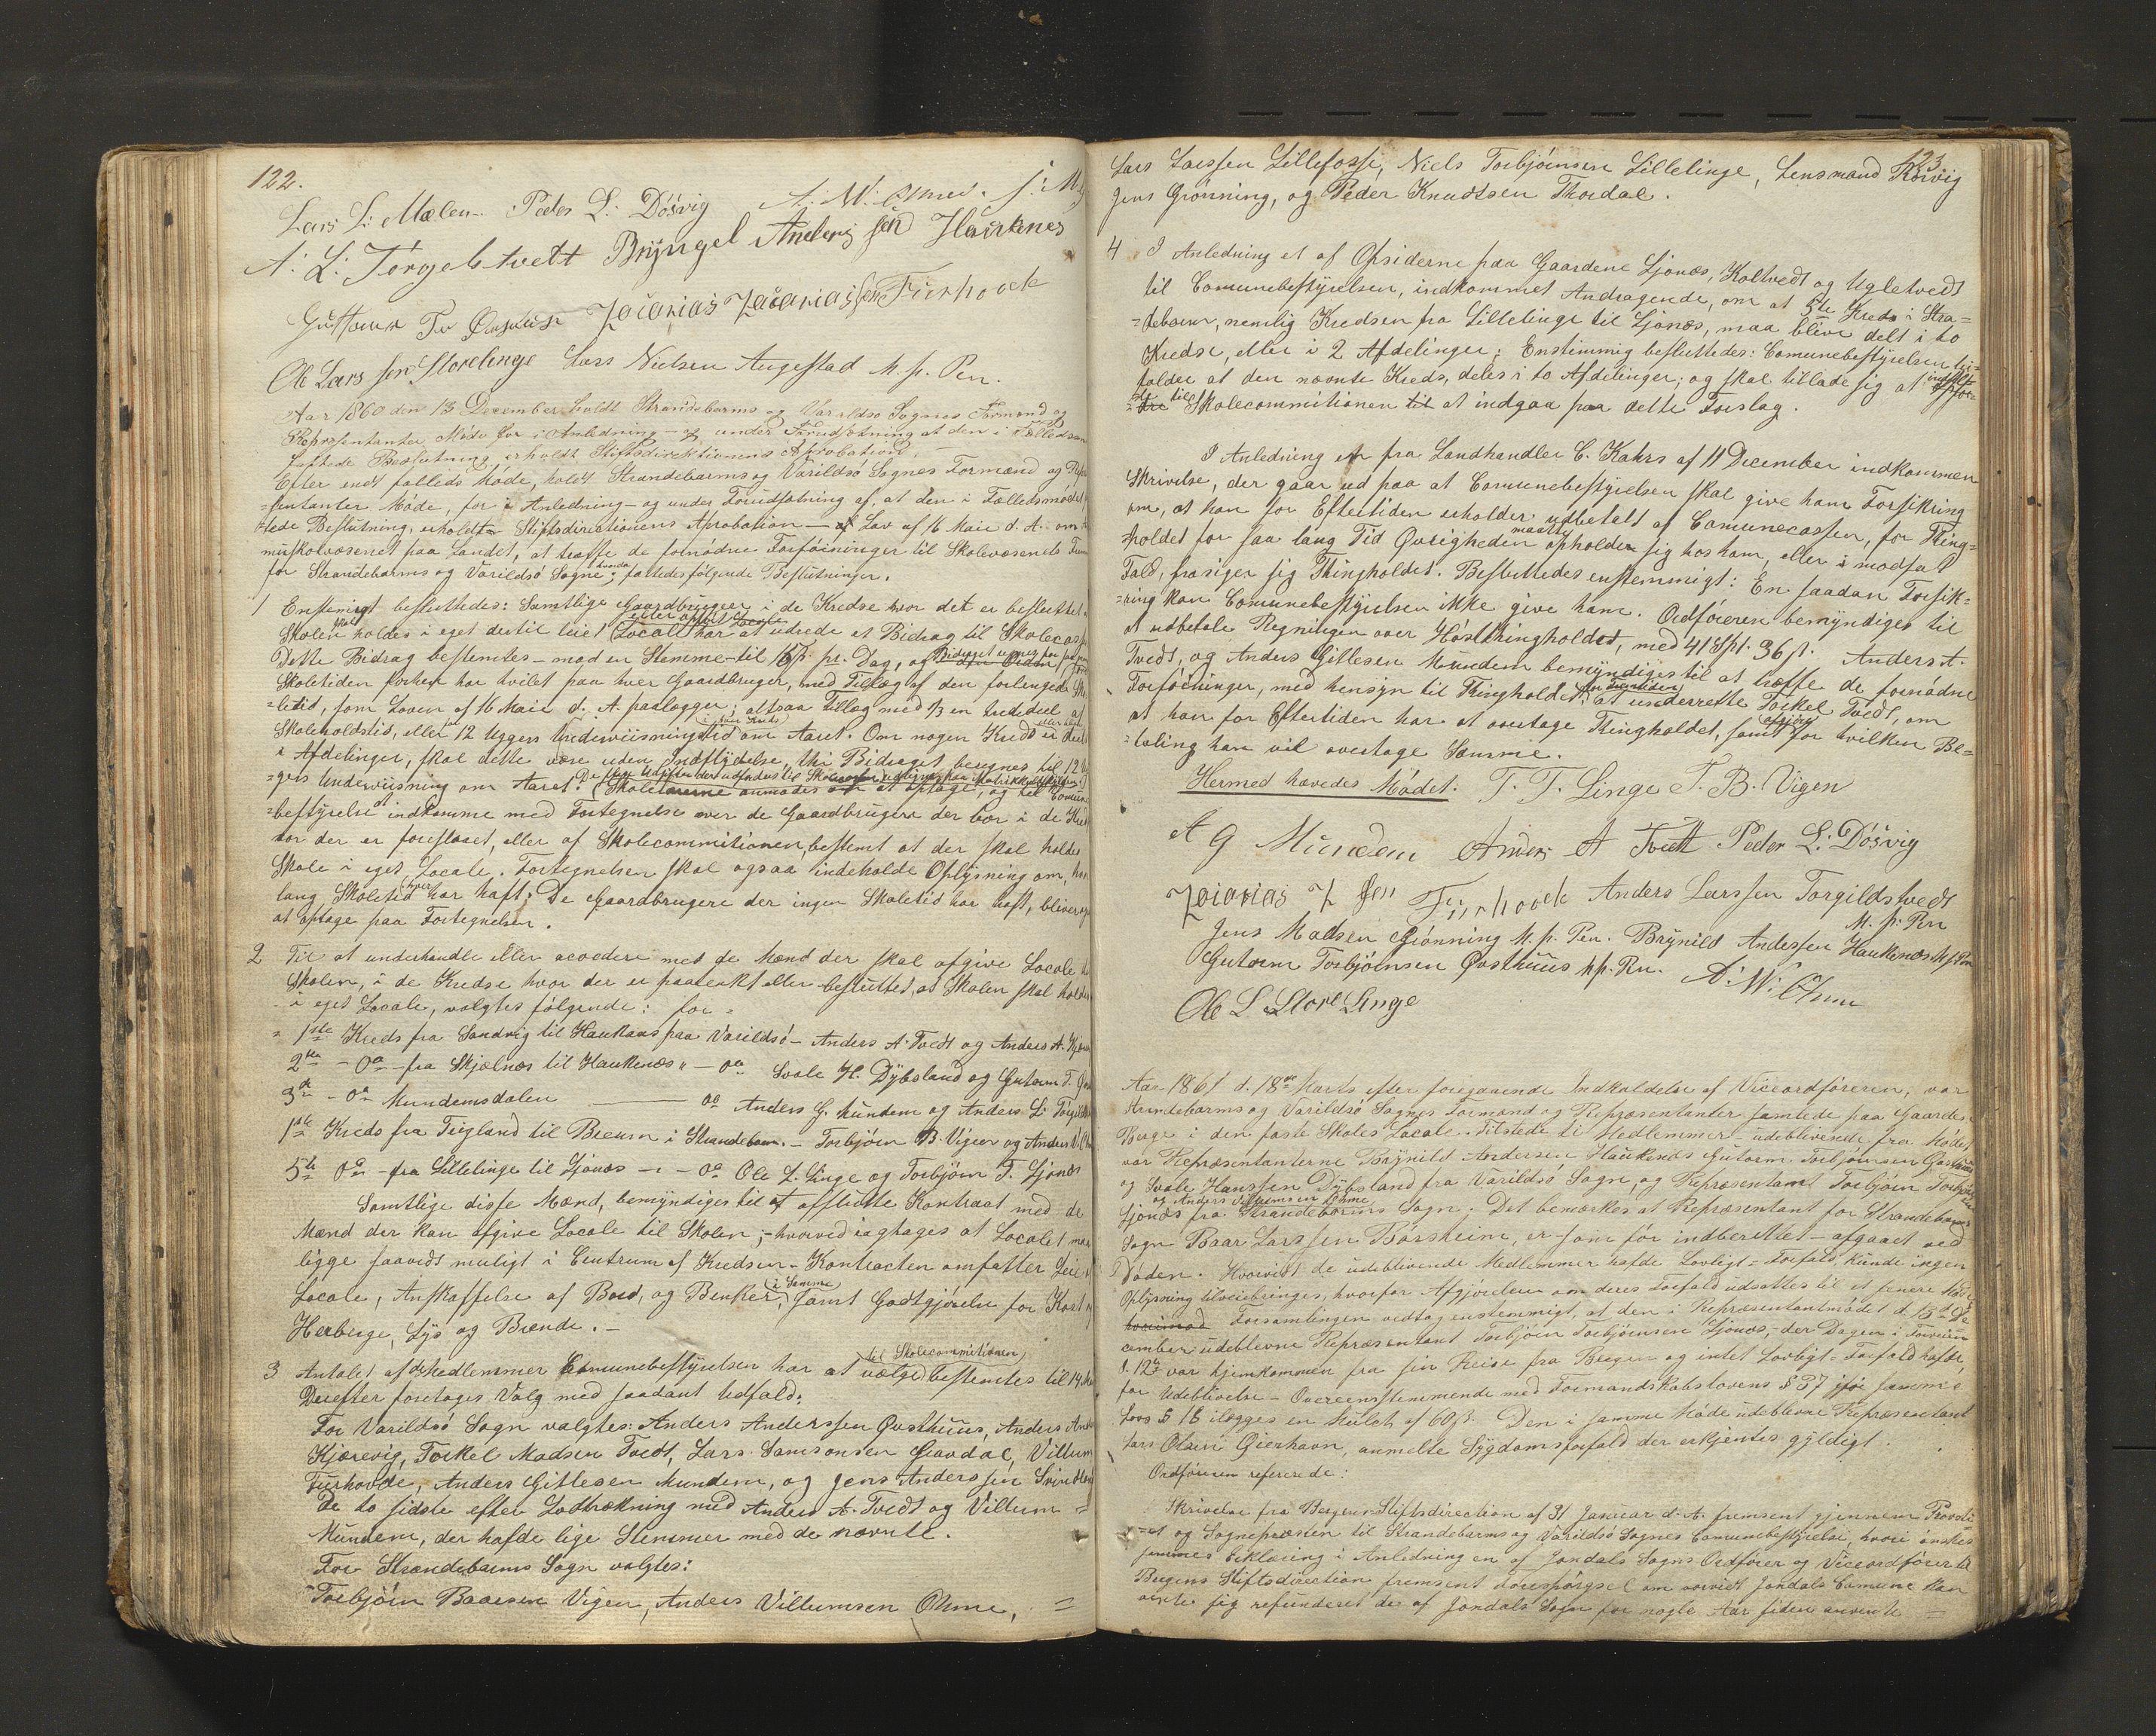 122.
Lars L: Mælen. Peder L: Dösvig A: W: Ohme. J: M
A: L: Törgelstvett Brÿngel Anders sen Haürknes
Guttorm Zacarias Zacariassen Fürhovde
Ole Lars sen Storelinge Lars Nielsen Augestad M. p. Pen.
Aar 1860 den 13 December holdt Strandebarms og Varaldsø Sognes Formænd og
Repræsentanter Möde for i Anledning – og under Forudsætning at den i Fælledsm
fattede Beslutning erholdt Stiftsdirektionens Aprobation. –
Efter endt fælleds Möde, holdt Strandebarms og Varildsö Sognes Formænd og Repr
=sentanter Möde, for i Anledning – og under Forudsætning af, at den i Fælledsmödet
tede Beslutning, erholdt Stiftsdirectionens Aprobation – af Lov af 16 Maie d. A. om
muskolvæsenet paa Landet, at træffe de fornödne Forföininger til Skolevæsenets Frem
for Strandebarms og Varildsö Sogne; hvorda fattedes følgende Beslutninger.
1 Enstemigt besluttedes: Samtlige Gaardbruger i de Kredse hvor det er besluttet
Skolen skal holdes i eget dertil leiet Locale har at udrede et Bidrag til Skolecass
Dette Bidrag bestemtes – mod en Stemme – til 16 ß pr. Dag, og
Skoletiden forhen har hvilet paa hver Gaardbruger, med Tillæg af den forlengede Sk
=letid, som Loven af 16 Maie d. A. paalægger; altsaa Tillæg med 1/3 en Trediedeel af
Skoleholdstid, eller 12 Uggers Underviisningstid i hver Kreds om Aaret. Om nogen Kreds er deelt
i Afdelinger, skal dette være uden Indflydelse, thi Bidraget beregnes til 12 U
=gers Underviisning om Aaret. Skolelærerne anmodes om at optage, og til Comune
=bestyrelse at indkomme med Fortegnelse over de Gaardbrugere der bor i de Kred
vor der er foreslaaet, eller af Skolecommitionen, bestemt at der skal holdes
Skole i eget Locale. Fortegnelsen skal ogsaa indeholde Oplysning om, hvor
lang Skoletid hver har haft; De Gaardbrugere der ingen Skoletid har haft, bliver og
at optage paa Fortegnelsen.
2 Til at underhandle eller accordere med de Mænd der skal afgive Locale til
Skolen, i de Kredse hvor der er paatænkt eller besluttet, at Skolen skal holdes
i eget Locale, valgtes følgende: for =
= 1ste Kreds fra Sandvig til Haukaas paa Varildsö – Anders A. Tvedt og Anders A. Kjær
2den – Do – fra Skjelnæs til Haukenæs " – Do Svale H. Dÿbsland og Gutorm T.
3die – Do Mundemsdalen — Do Anders G. Mundem og Anders L: Torgild
1ste Kreds fra Teigland til Breum i Strandebarm. – Torbjörn B. Vigen og Anders V. Oh
5te Do – fra Lillelinge til Ljonæs – " – Do Ole L. Linge og Torbjörn T. Ljonæs
Samtlige disse Mænd, bemyndiges til at afslutte Kontract med de
Mænd der kan afgive Locale til Skolen; – hvorved iagttages at Localet maa
ligge saavidt muligt i Centrum af Kredsen. – Kontracten omfatter Leie
Locale, Anskaffelse af Bord, og Benker i Samme, samt Godtgjörelse for Kost og
Herberge, Lys og Brænde. –
3 Antallet af de Medlemmer Comunebestyrelsen har at vælge til Skolecommitionen bestemtes til 14
Derefter foretoges Valg med saadant Udfald:
For Varildsö Sogn valgtes: Anders Anderssen Qvsthüus, Anders And
Kjærevig, Torkel Madsen Tvedt, Lars Samsonsen Gravdal, Villum
Fürhovde, Anders Gitlesen Mundem, og Jens Anderssen
De to sidste efter Lodtrækning med Anders A. Tvedt og Villum =
Mundem, der hafde lige Stemmer med de nævnte.
For Strandebarms Sogn valgtes:
Torbjörn Baarsen Vigen, Anders Villumsen Ohme, =
123
Lars Larssen Lillefosse, Niels Torbjörnsen Lillelinge, Lensmand Rörvig
Jens Grönning, og Peder Knudtsen Thordal.
4 I Anledning et af Opsiderne paa Gaardene Ljonæs, Koltvedt og Ugletvedt
til Comunebestyrelsen, indkommet Andragende, om at 5te Kreds i Stra=
=debarm, nemlig Kredsen fra Lillelinge til Ljonæs, maa blive delt i to
Kredse, eller i 2 Afdelinger; Enstimmig besluttedes: Comunebestyrelsen til
falder at den nævnte Kreds, deles i to Afdelinger; og skal tillade sig at
til Skolecommitionen til at indgaa paa dette Forslag.
I Anledning en fra Landhandler C. Kahrs af 11 December indkommen
Skrivelse, der gaar ud paa at Comunebestyrelsen skal give ham Forsikring
om, at han for Eftertiden erholder udbetalt af Comunecassen, for Thing=
=holdet for saa lang Tid Øvrigheden maatte opholder sig hos ham, eller i modsat
Fald, frasiger sig Thingholdet. Besluttedes enstemmigt: En saadan Forsik=
=ring kan Comunebestyrelsen ikke give ham. Ordföreren bemyndiges til
at udbetale Regningen over Höstthingholdet, med 41 Spd. 36 ß. Anders A.
Tvedt, og Anders Gitlesen Mundem bemyndiges til at træffe de fornödne
Forföininger, med hensyn til Thingholdet for Fremtiden; at underrette Torkel Tvedt, om
at han for Eftertiden har at overtage Thingholdet, samt afgjöre for hvilken Be=
=taling han vil overtage Samme.
Hermed hævedes Mödet. T. T. Linge T. B. Vigen
A G Mundem Anders A Tvett Peder L: Dösvig
Zacarias Z sen Fürhovde Anders Larssen Torgildstvedt
M. p. Pen
Jens Madsen Grönning M. p. Pen. Brÿnild Andersen Haukenæs M p Pen
Gutorm Torbjörnsen Øvsthüus Mp. Pen. A: W: Ohme
Ole L Store Linge
Aar 1861 d. 18de Marts efter foregaaende Indkaldelse af Viceordföreren, var
Strandebarms og Varildsö Sognes Formænd og Repræsentanter samlede paa Gaarden
Berge i den faste Skoles Locale. Tilstede ti Medlemmer – udeblivende fra Mödet
var Repræsentanterne Brÿnild Andersen Haükenæs Gutorm Torbjörnsen Øvsthüus
og Svale Hanssen Dÿbsland fra Varildsö Sogn, og Repræsentant Torbjörn Torbjörnsen
Ljonæs og Anders Villumsen Ohme fra Strandebarms Sogn. Det bemærkes at Repræsentant for Strandebarms
Sogn Baar Larssen Børsheim, er – som för indberettet – afgaaet ved
Döden. Hvorvidt de udeblivende Medlemmer hafde Lovligt = Forfald, kunde ingen
Oplysning tilveiebringes, hvorfor Afgjörelsen om deres Forfald udsattes til et senere Möde
Forsamlingen vedtog enstemmigt, at den i Repræsentantmödet d. 13de De
cember udeblevne Repræsentant Torbjörn Torbjörnsen Ljonæs, – der Dagen i Forveien
d. 12te var hjemkommen fra sin Reise fra Bergen og intet Lovligt = Forfald hafde,
for Udeblivelse – Overeensstemmende med Formandskabslovens § 37 jfr samme
Lovs § 18 ilægges en Mulct af 60 ß. Den i samme Möde udeblevne Repræsentant
Lars Olsen Gierhavn, anmelte Sygdomsforfald der erkjentes gyldigt.
Ordföreren refererede:
Skrivelse fra Bergens Stiftsdirection af 31 Januar d. A. fremsent gjennem Provsti=
=et og Sognepræsten til Strandebarms og Varildsö Sognes Comunebestyrelse, hvori önskes
sammes Erklæring i Anledning en af Jondals Sogns Ordförer og Viceordförer til
Bergens Stiftsdirection fremsent Forespörgsel om hvorvidt Jondals Comune kan
vente sig refunderet de af Jondals Sogn for nogle Aar siden anvente =